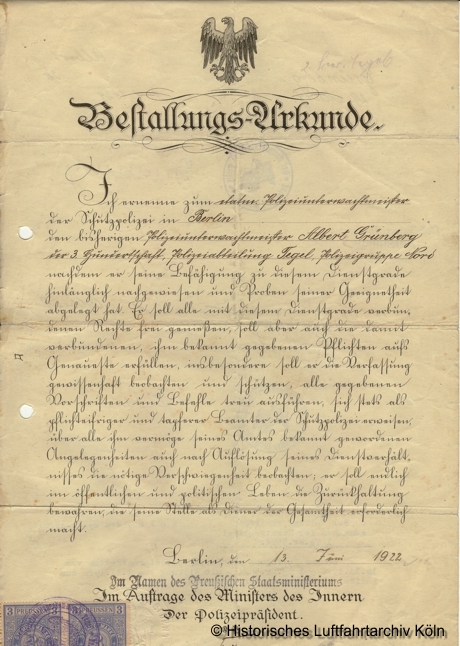 Bestallungs-Urkunde.
Ich ernenne zum etatm. Polizeiunterwachtmeister
der Schutzpolizei in Berlin
den bisherigen Polizeiunterwachtmeister Albert Grünberg
der 3. Hundertschaft, Polizeiabteilung Tegel, Polizeigruppe Nord
nachdem er seine Befähigung zu diesem Dienstgrade
hinlänglich nachgewiesen und Proben seiner Geeignetheit
abgelegt hat. Er soll alle mit diesem Dienstgrade verbun,
denen Rechte frei genießen, soll aber auch die damit
verbundenen, ihm bekannt gegebenen Pflichten aufs
Genaueste erfüllen, insbesondere soll er die Verfassung
gewissenhaft beobachten und schützen, alle gegebenen
Vorschriften und Befehle treu ausführen, sich stets als
pflichteifriger und tapferer Beamter der Schutzpolizei erweisen,
über alle ihm vermöge seines Amtes bekannt gewordenen
Angelegenheiten auch nach Auflösung seines Dienstverhält,
nisses die nötige Verschwiegenheit beobachten; er soll endlich
im öffentlichen und politischen Leben die Zurückhaltung
bewahren, die seine Stelle als Diener der Gesamtheit erforderlich
macht.
Berlin, den 13. Juni 1922
Im Namen des Preußischen Staatsministeriums
Im Auftrage des Ministers des Innern
Der Polizeipräsident.
3 PREUSSEN 3
© Historisches Luftfahrtarchiv Köln